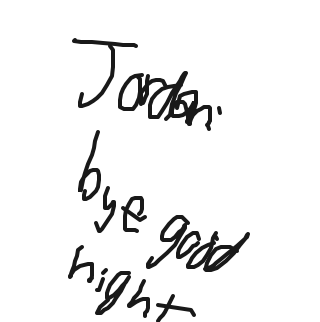 Jordan.
bye good
night